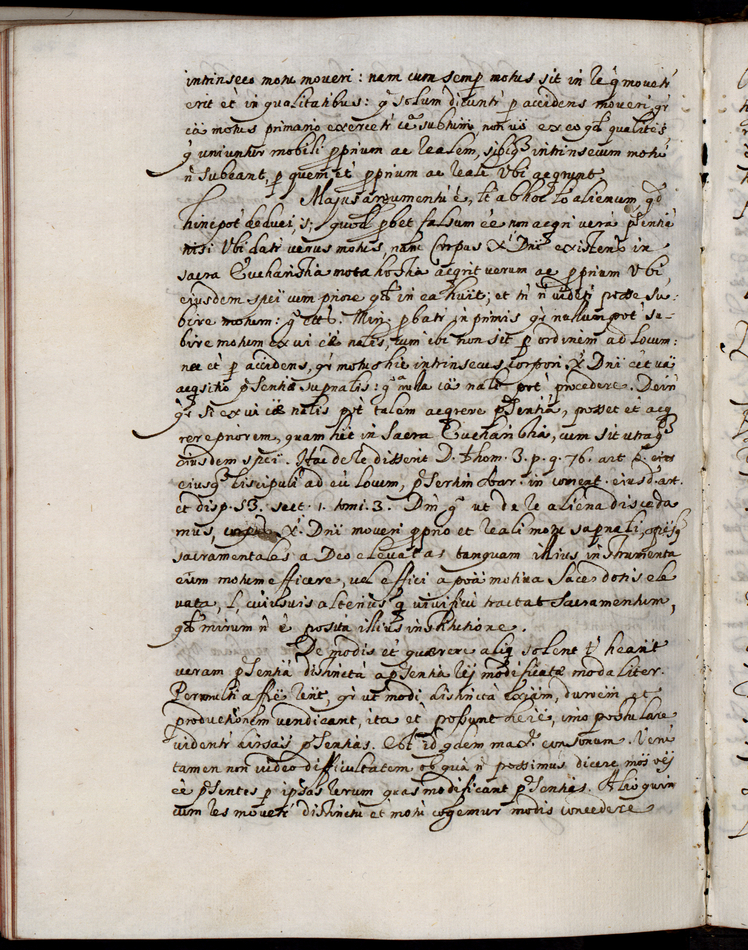 intrinseco motu moveri: nam cum semp motus sit in re q̃ movetr
erit et in qualitatibus: q̃ solum dicuntr p accidens moveri, qr
motus primario exercetr subtum, non ex eo qd qualites
q̃ uniuntur mobili pprium ac realem, intrinsecum motũ
ñ subeant, p quem et pprium ac reale Vbi acqrunt
Majus argumentũ ẽ, ab hoc loco alienum, qd
hinc pot deduci s; quod pbet falsum ẽe non acqri verã psentiã
nisi Vbi datr verus motus, nam Corpus X Dni existens in
sacra Eucharistia mota hostia acqrit verum ac pprium Vbi
eiusdem spei cum priore qd in ea huit; et tñ ñ videtr posse su-
bire motum: q̃ etc. Min. pbatr in primis qr nullum pot su-
bire motum ex vi cæ nalis, tum ibi non sit p ordinem ad locum:
nec et p accidens, qr motus hic intrinsecus corpori X Dni
acqsitio psentiæ supnalis: q̃ a nulla cã nali pot procedere. Dein
qr si ex vi cæ nalis pot talem acqrere psentiã, posset et acq
rere priorem, quam hũt in Sacra Eucharistia, cum sit utraqз
eiusdem spei. Hac de re disserit D. Thom. 3. p. q. 76. art.
eiusqз discipuli ad eũ locum, psertim Suar. in coment. eiusd. art.
et disp. 53. sect. 1. tomi. 3. Dm q̃ ut de re aliena disceda
mus, corpus X Dni moveri pprio et reali motu supnali,
sacramentales a Deo elevatas tanquam illius instrumenta
eum motum efficere, vel effici a poã motiva Sacerdotis ele
vata, l. cuiusvis alterius q̃ vivificũ tractat Sacramentum,
qd mirum ñ ẽ posita illius institutione.
De modis et quærere aliq solent heant
veram psentiã distinctã a psentia rei modificatæ modaliter.
Permulti afferent, qr ut modi distinctã exiam, durõem et
productionem vendicant, ita et possunt imo postulare
videntr diversas psentias. Est id qdem consonum. Veru
tamen non video difficultatem ob quã ñ possimus dicere, mõs rei
ẽe psentes p ipsas rerum quas modificant psentias. Alioquin
cum res movetr distinctũ et motũ cogemur modis concedere